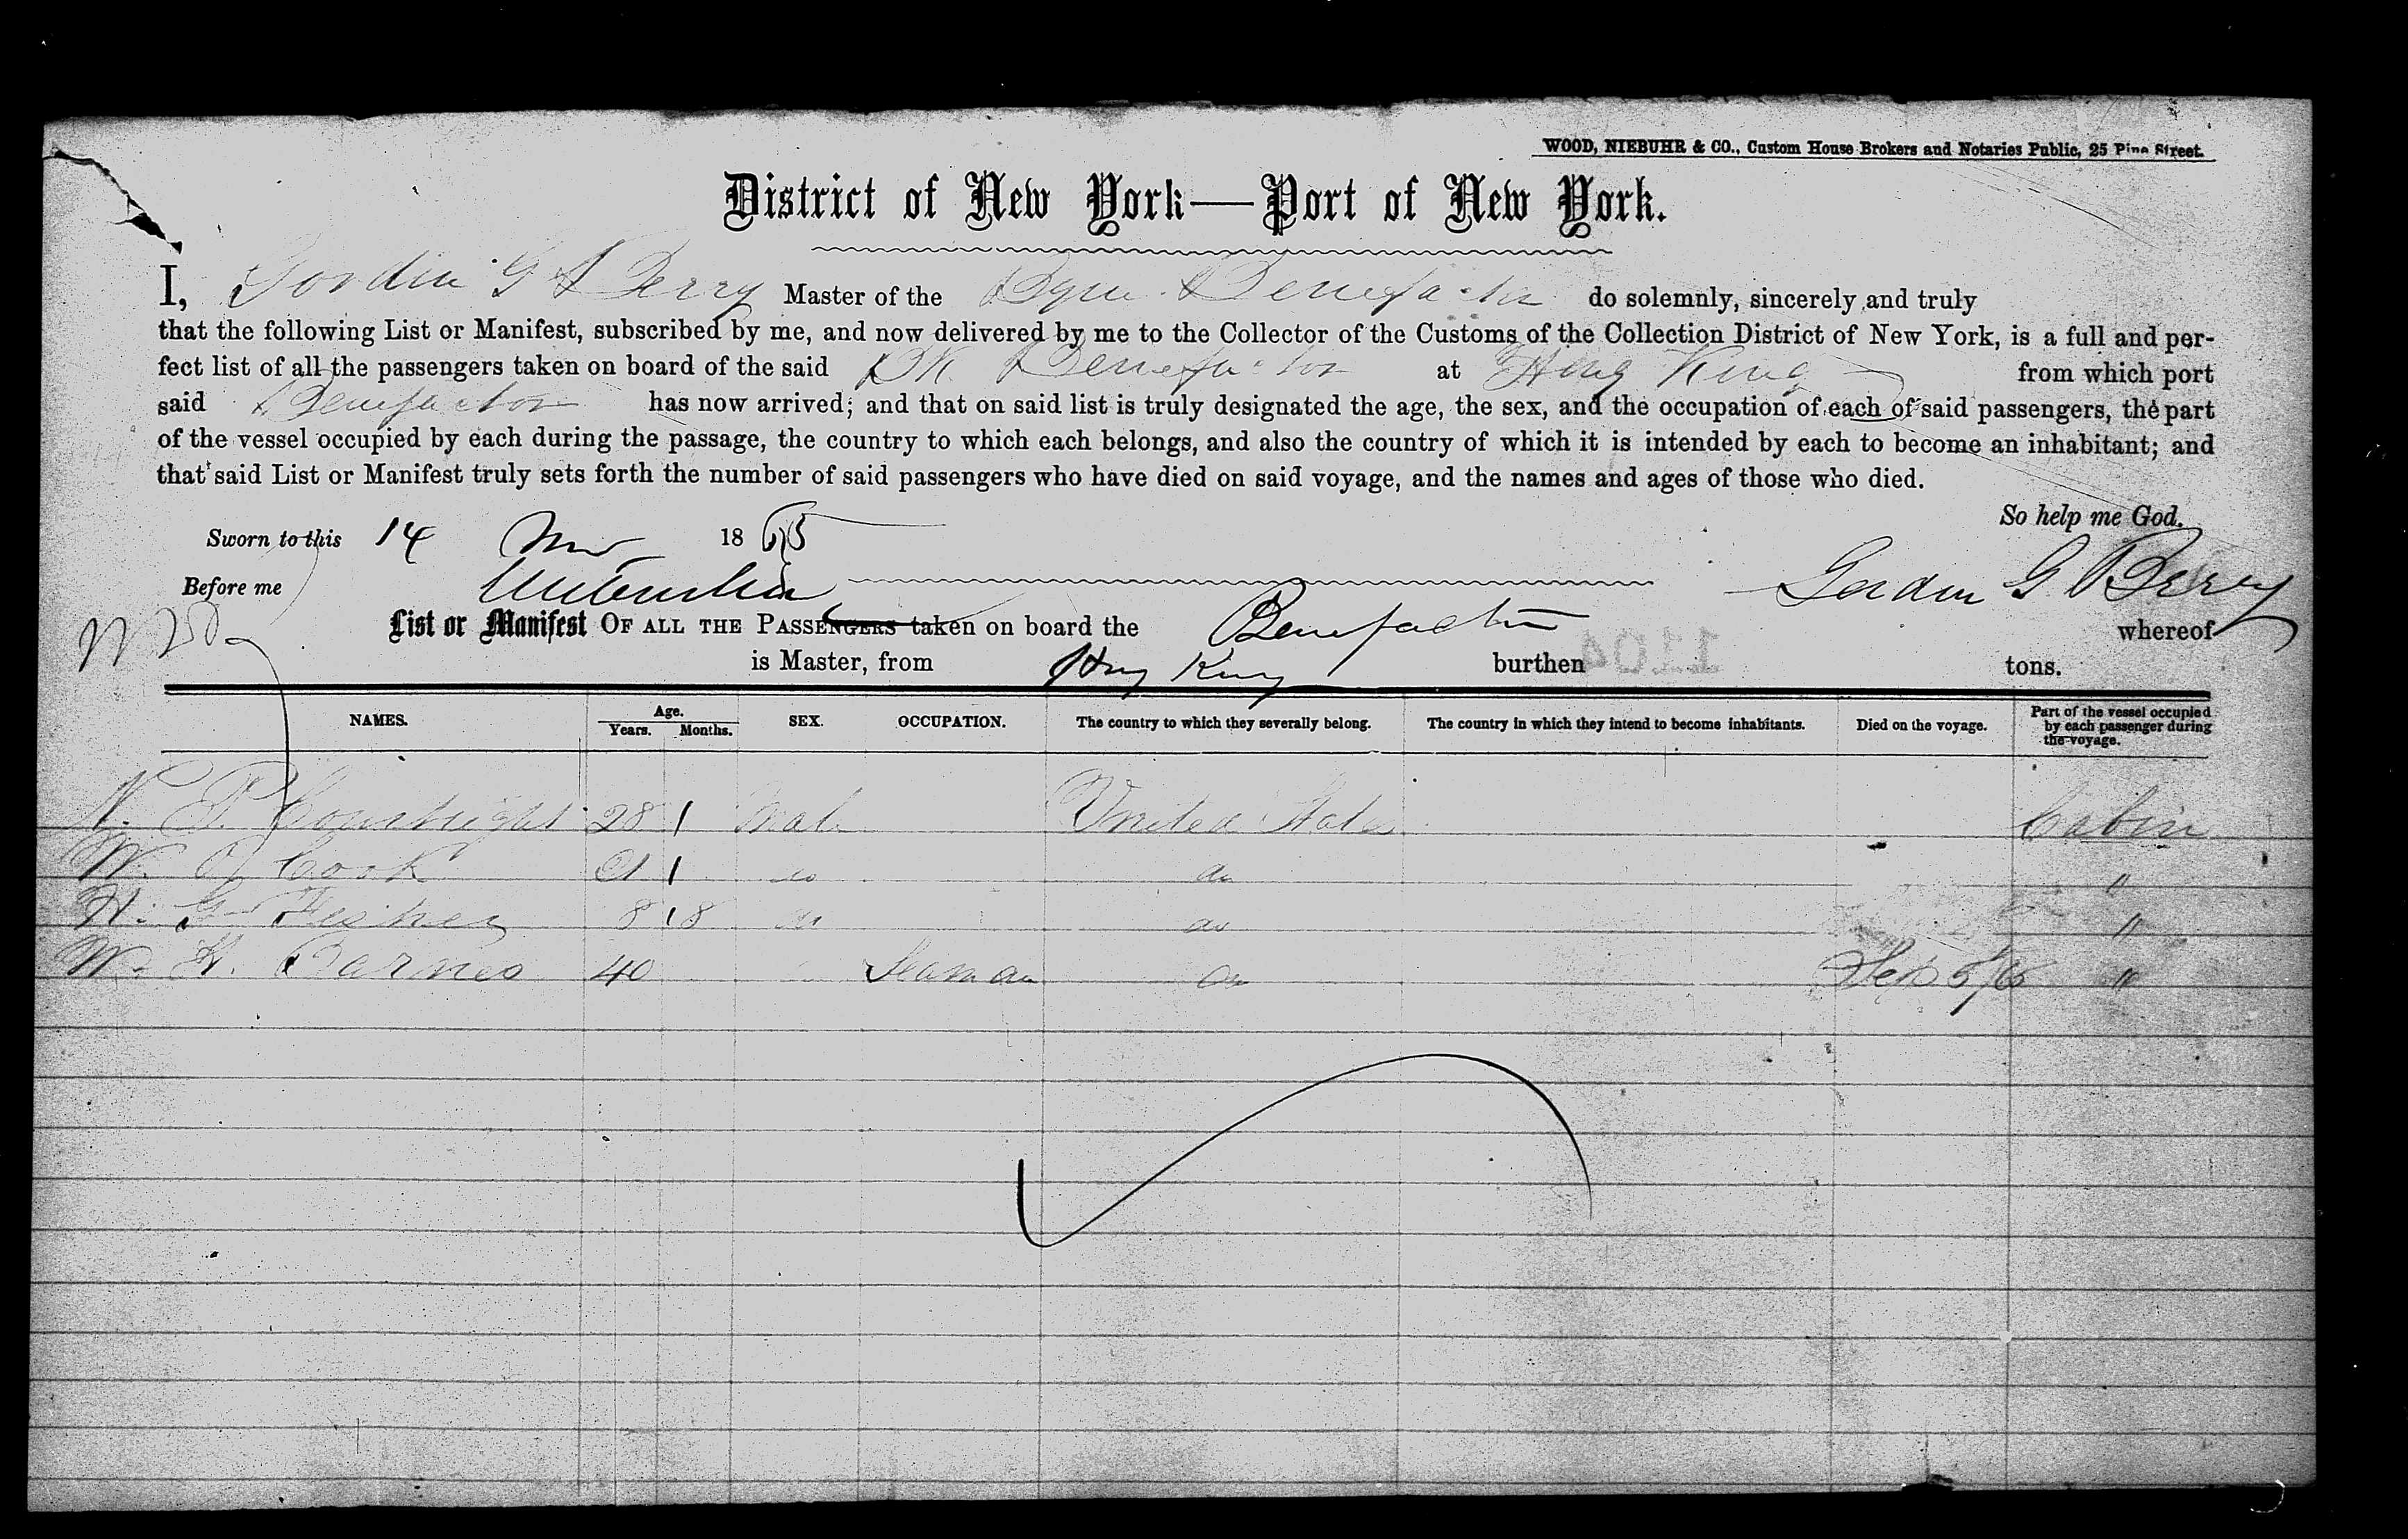 WOOD, NIEBUHR & CO., Custom House Brokers and Notaries Public, 25 Pine Street.
District of New York—Port of New York.
I, Gordin G Berry Master of the Benefactor do solemnly, sincerely and truly
that the following List or Manifest, subscribed by me, and now delivered by me to the Collector of the Customs of the Collection District of New York, is a full and per-
fect list of all the passengers taken on board of the said Bk Benefactor at Hong Kong from which port
said Benefactor has now arrived; and that on said list is truly designated the age, the sex, and the occupation of each of said passengers, the part
of the vessel occupied by each during the passage, the country to which each belongs, and also the country of which it is intended by each to become an inhabitant; and
that said List or Manifest truly sets forth the number of said passengers who have died on said voyage, and the names and ages of those who died.
So help me God.
Sworn to this 14 Nov 1865
Before me Gordon G Berry
List or Manifest OF ALL THE PASSENGERS taken on board the Benefactor whereof
is Master, from Hong Kong burthen tons.
1104
NAMES. Age. Years. Months. SEX. OCCUPATION. The country to which they severally belong. The country in which they intend to become inhabitants. Died on the voyage. Part of the vessel occupied by each passenger during the voyage.
28 1 Male United States Cabin
W. Cook 1 do do "
H. G. Fisher 8 18 do do "
W. H. Barnes 40 Seaman do Sep 5/65 "